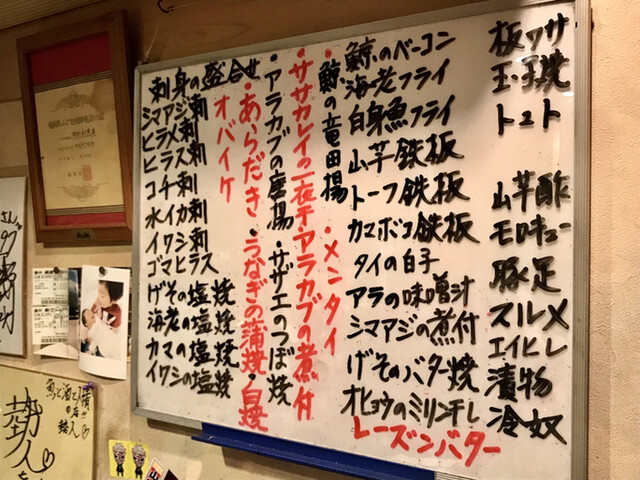 刺身の盛合せ
シマアジ刺
ヒラメ刺
ヒラス刺
コチ刺
水イカ刺
イワシ刺
ゴマヒラス
げその塩焼
海老の塩焼
カマの塩焼
イワシの塩焼
オバイケ
・あらだき・うなぎの蒲焼・白焼
・アラカブの唐揚・サザエのつぼ焼
・ササカレイの一夜干・アラカブの煮付
・鯨の竜田揚・メンタイ
鯨のベーコン
海老フライ
白身魚フライ
山芋鉄板
トーフ鉄板
カマボコ鉄板
タイの白子
アラの味噌汁
シマアジの煮付
げそのバター焼
オヒョウのミリン干し
レーズンバター
板ワサ
玉子焼
トマト
山芋酢
モロキュー
豚足
スルメ
エイヒレ
漬物
冷奴
魚と酒と情
の店!!
勢人♡
勢人